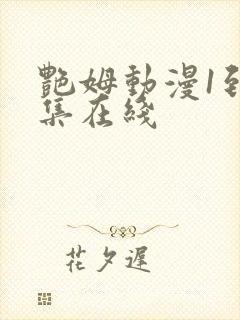 艷姆動漫1到
集在綫
花夕遲